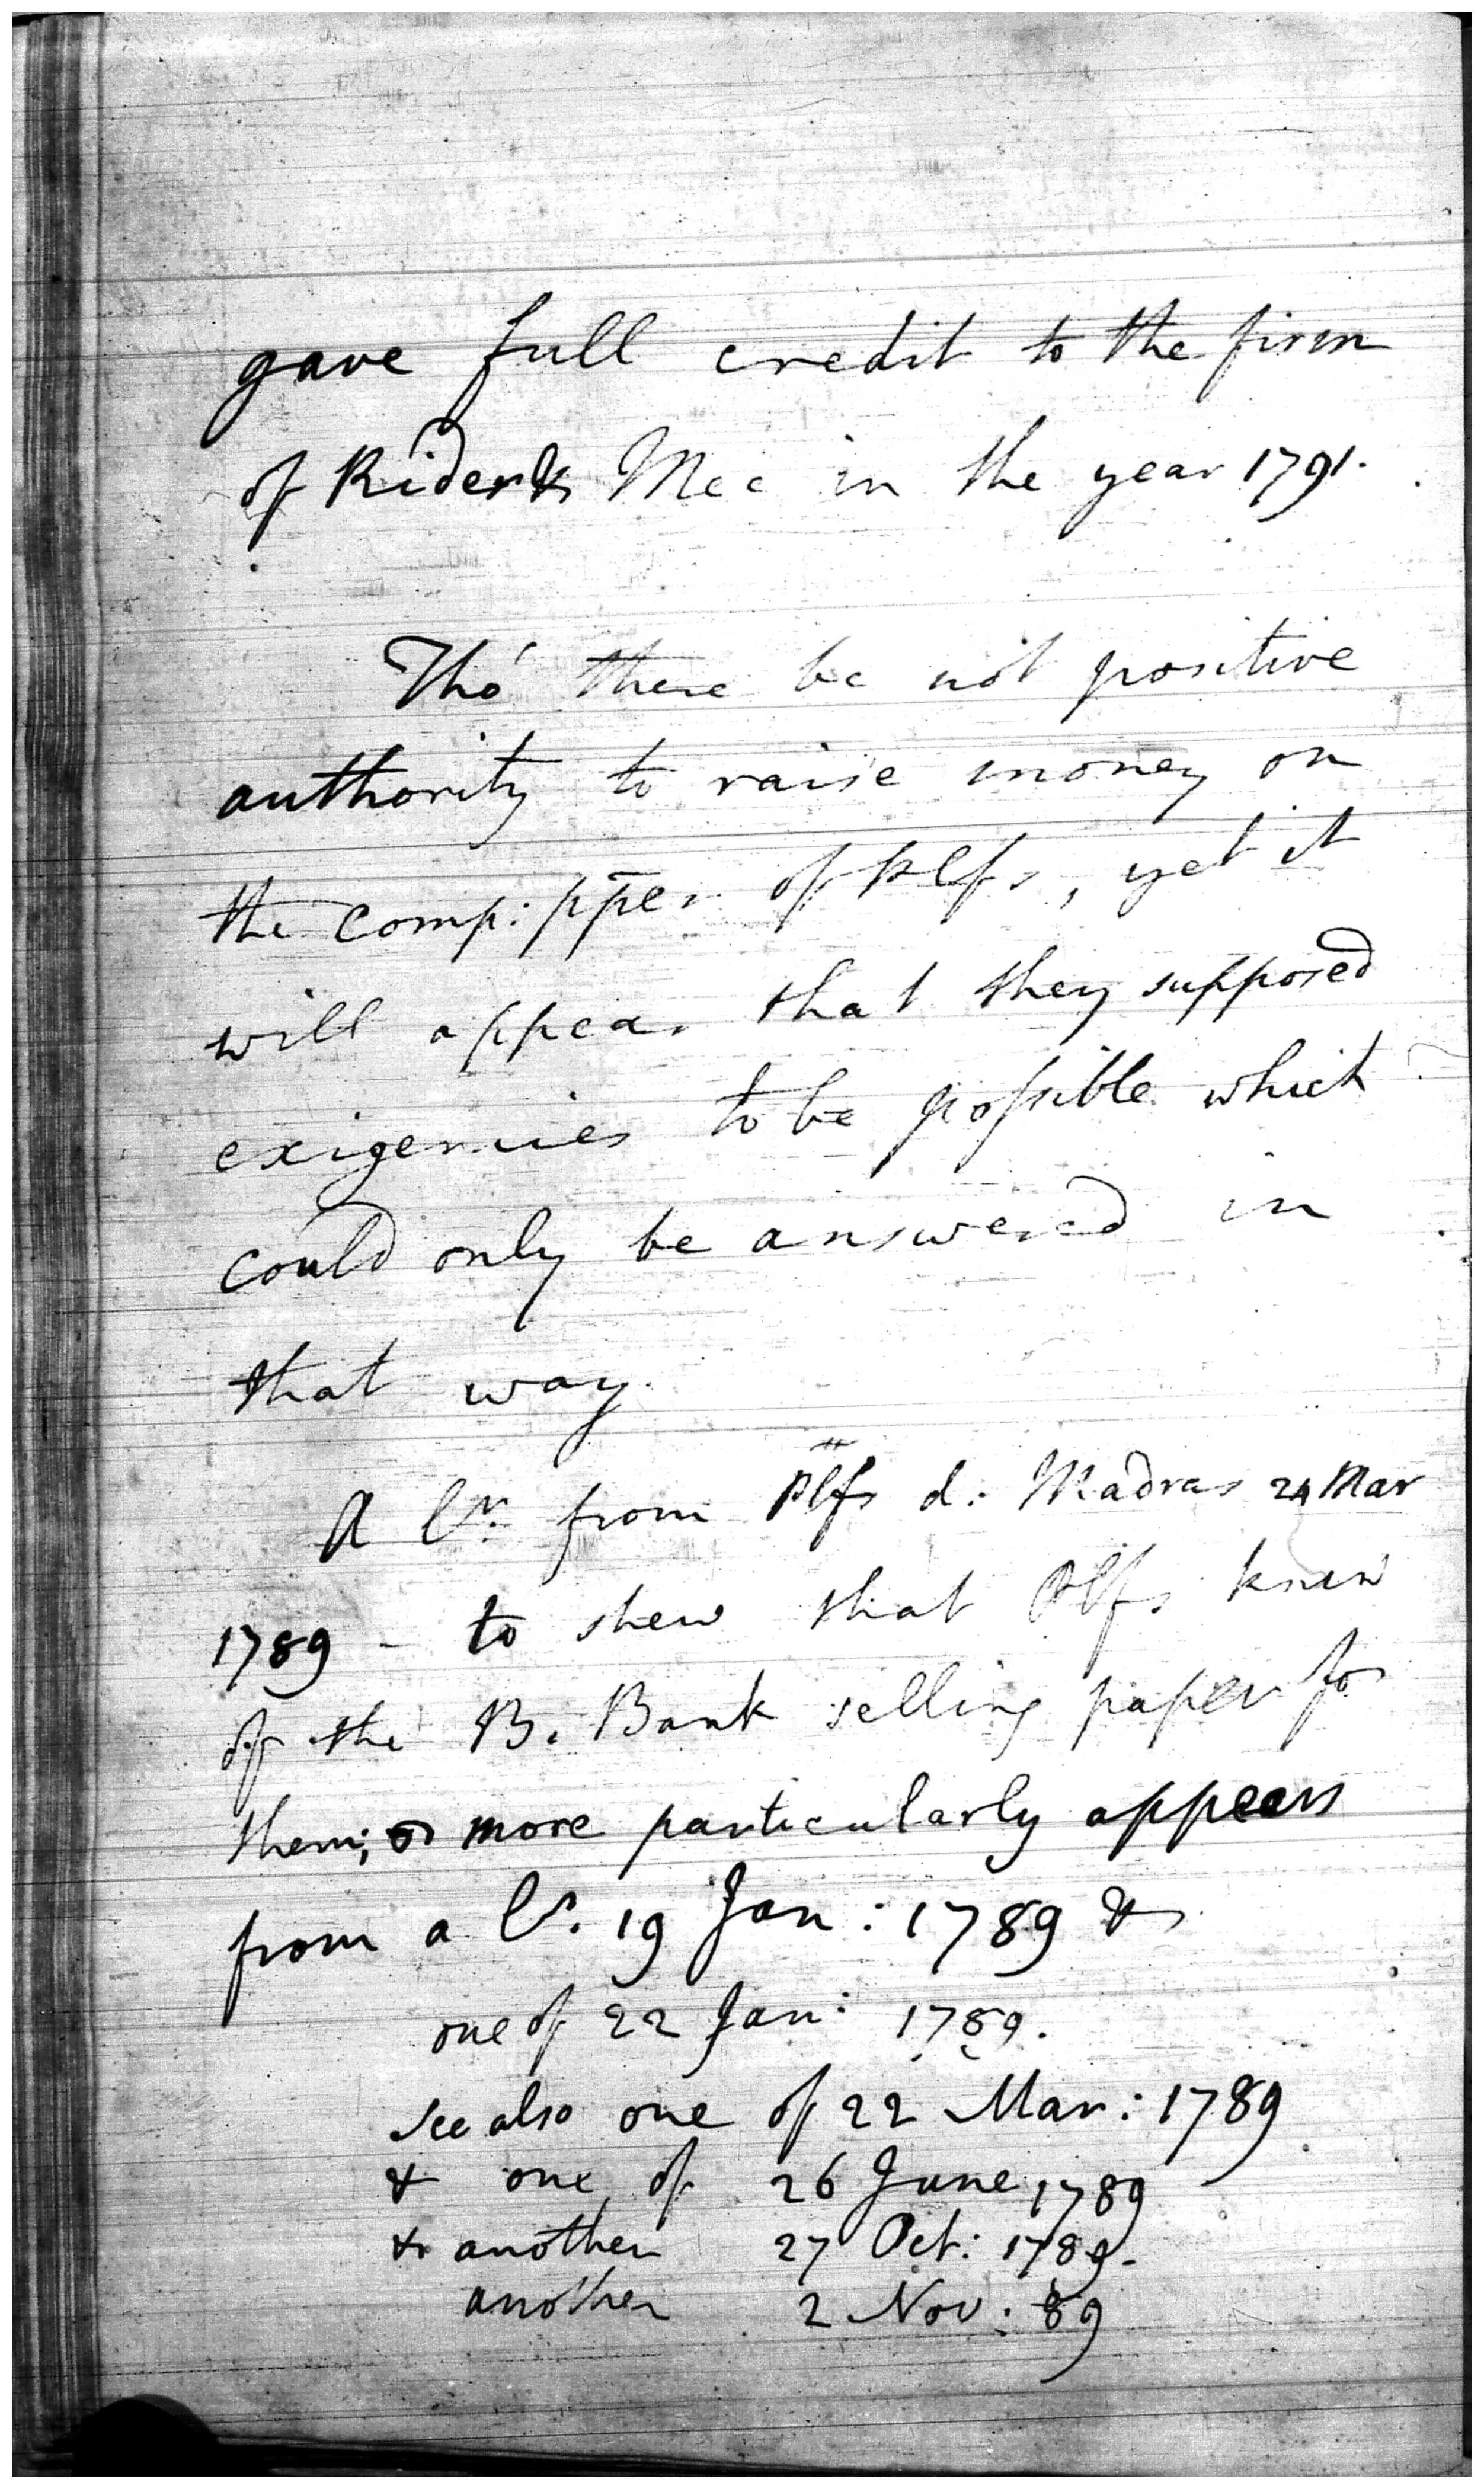 gave full credit to the firm
of Rider & Mee in the year 1791.
Tho' there be not positive
authority to raise money on
the comp: pper of Plfs, yet it
will appear that they supposed
exigencies to be possible which
could only be answered in
that way.
A lr. from Plfs d: Madras 24 Mar
1789 - to shew that Plfs knew
of the B. Bank selling paper for
them; more particularly appears
from a lr. 19 Jan: 1789 &
one of 22 Jan: 1789.
see also one of 22 Mar: 1789
& one of 26 June 1789
& another 27 Oct: 1789.
another 2 Nov: 89